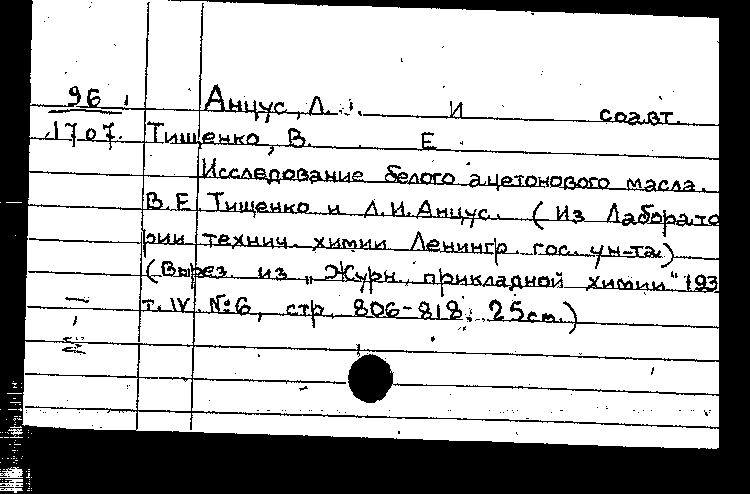 96
Анцус, Л. И. и соавт.
1707. Тищенко, В. Е.
Исследование белого ацетонового масла.
В.Е Тищенко и Л.И. Анцус. (Из Лаборато
рии технич. химии Ленингр. гос. ун-та)
(Вырез. из „Журн. прикладной химии" 193
т. IV. №6, стр. 806-818; 25 см.)